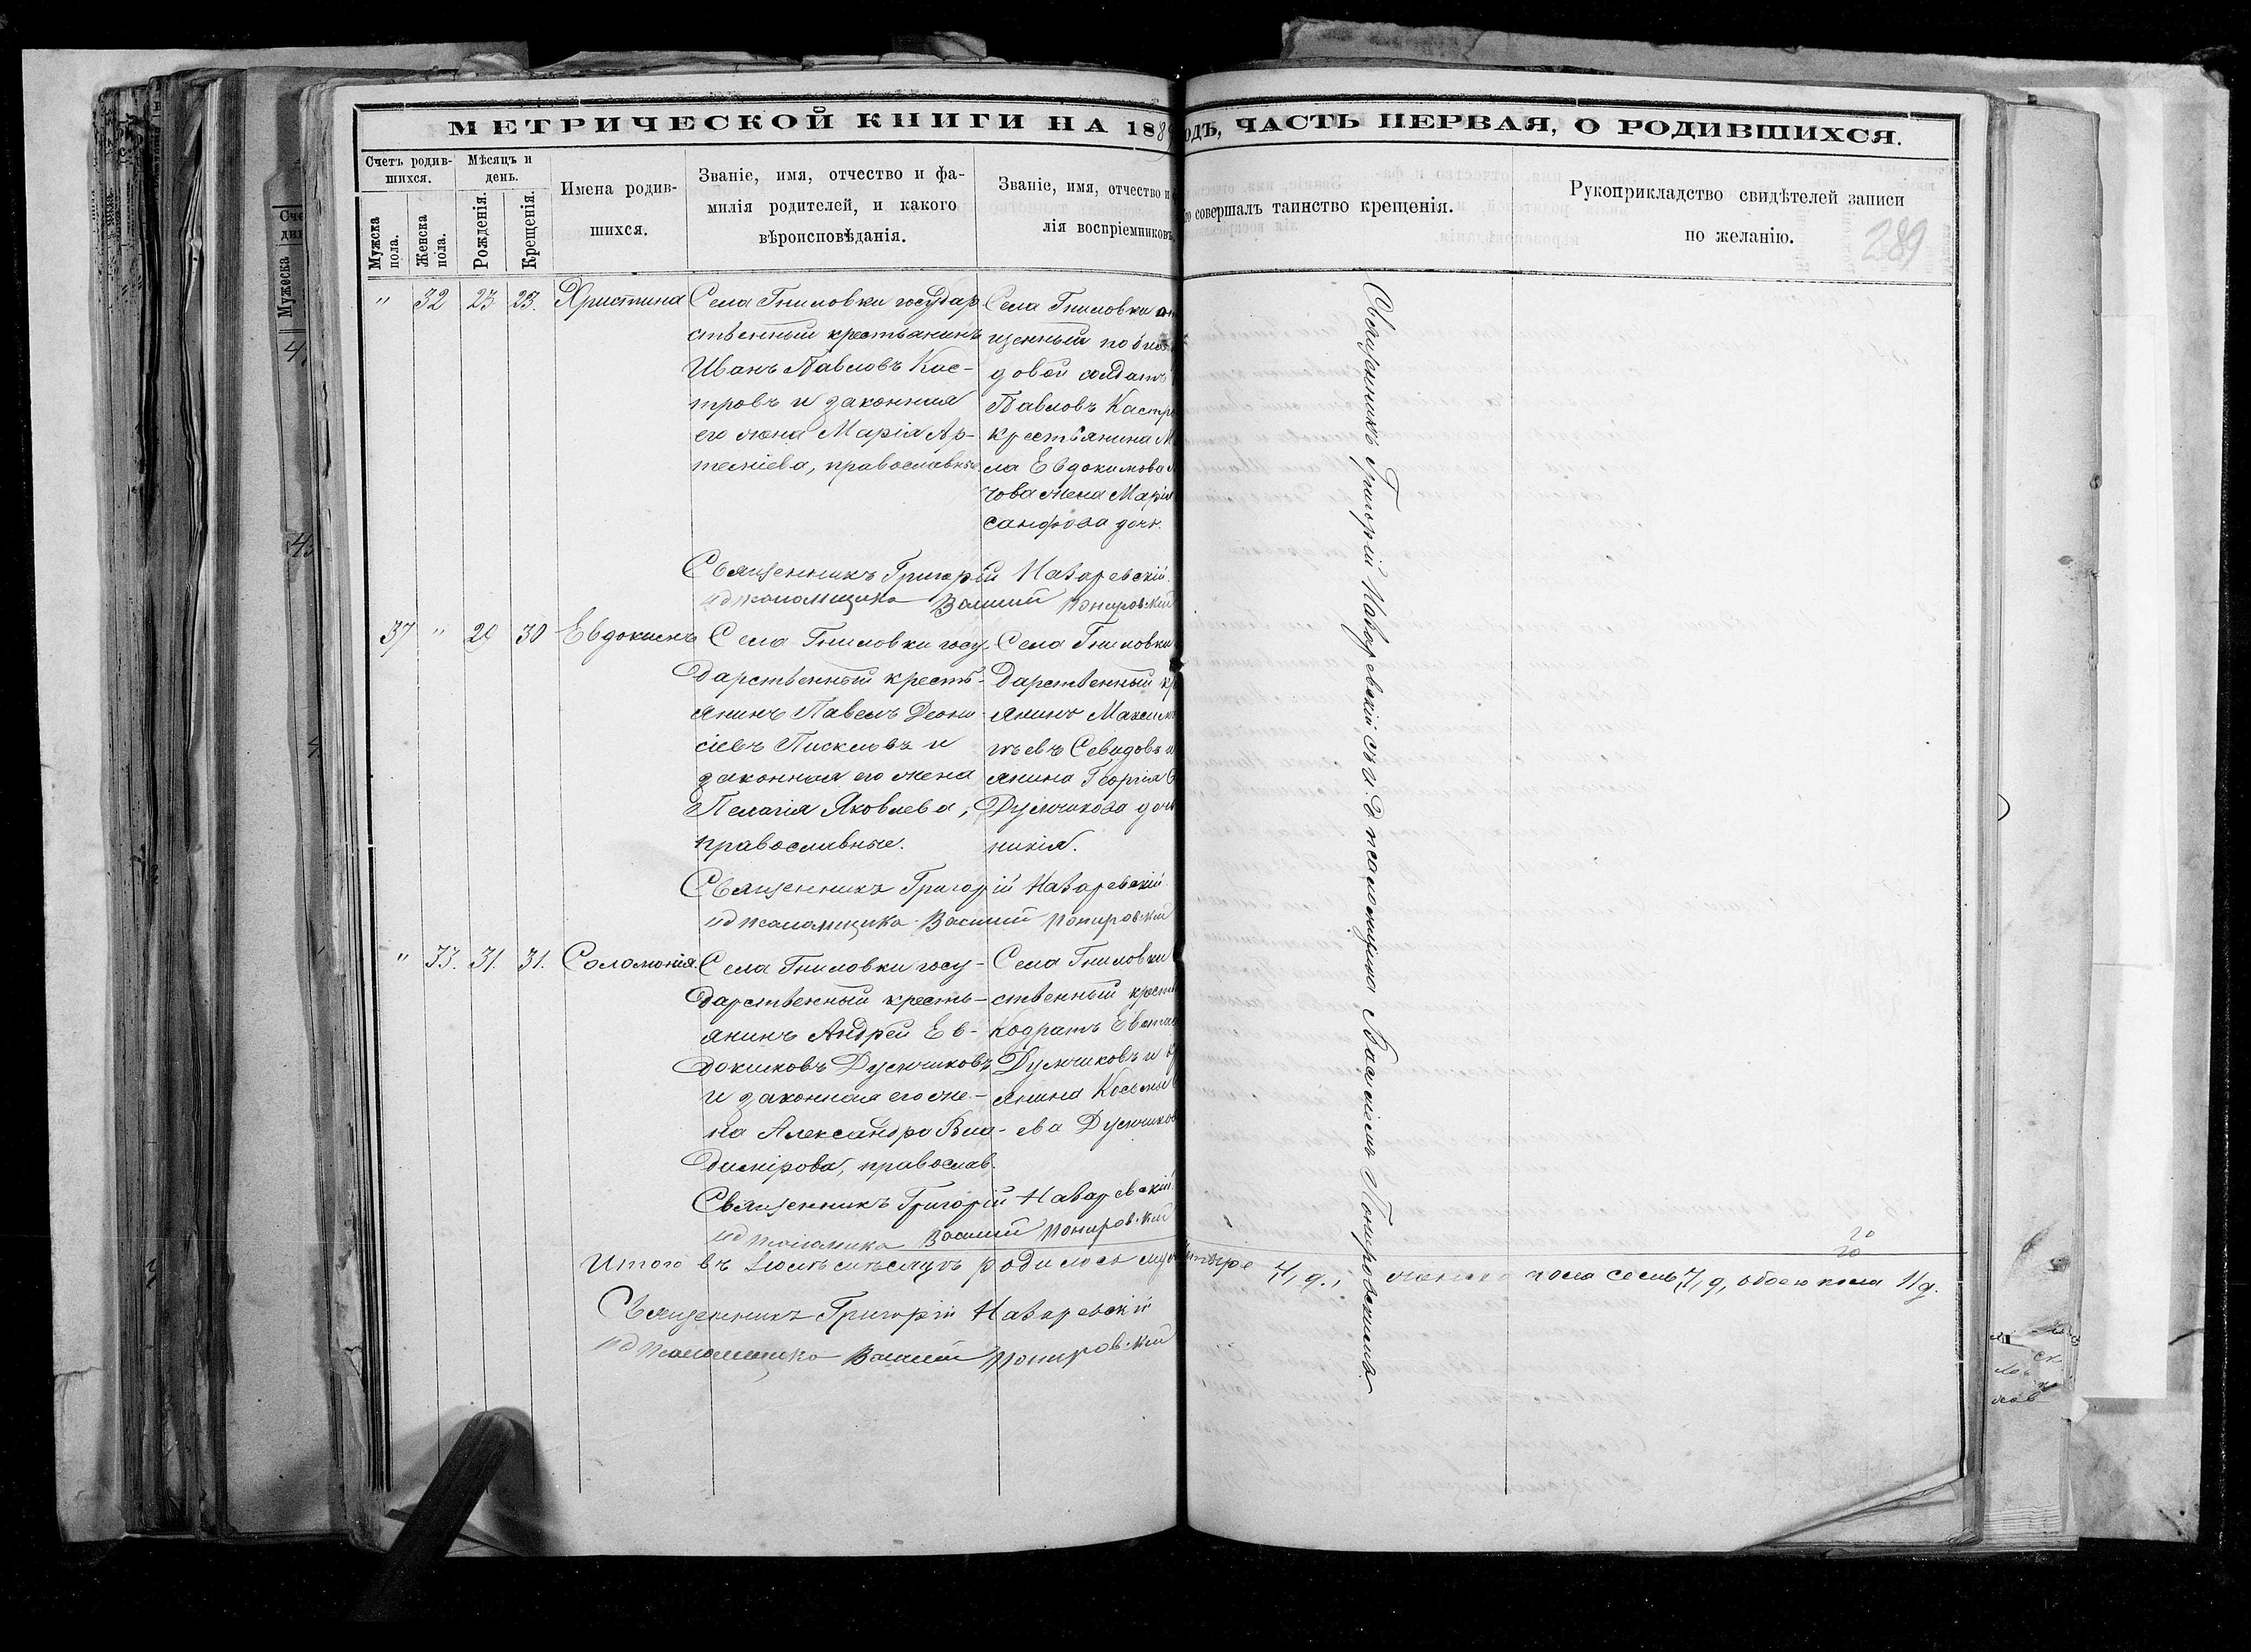 МЕТРИЧЕСКОЙ КНИГИ НА 1889
ОДЪ, ЧАСТЬ ПЕРВАЯ, О РОДИВШИХСЯ.
289
Счетъ родив-
шихся.
Мужска
пола.
Женска
пола.
Мѣсяцъ и
день.
Рожденія.
Крещенія.
Имена родив-
шихся.
Званіе, имя, отчество и фа-
милія родителей, и какого
вѣроисповѣданія.
Званіе, имя, отчество и
лія воспріемниковъ.
то совершалъ таинство крещенія.
Рукоприкладство свидѣтелей записи
по желанію.
" 32 23 23. Христина
Села Гниловки государ
ственный крестьянинъ
Иванъ Павловъ Кас-
тровъ и законная
его жена Марія Ар-
темиева, православные
Села Гниловки
щенный по бил
довой солдатъ
Павловъ Кастро
крестьянина М
ла Евдокимова
това жена Марія
санфрова дочь.
Священникъ Григорій Назаревскій
ид псаломщика Василій Понировскій
37 " 29 30 Евдокимъ
Села Гниловки госу-
дарственный кресть-
янинъ Павелъ Діони-
сіевъ Пискловъ и
законная его жена
Пелагія Яковлева,
православные.
Села Гниловки
дарственный кр
янинъ Максим
Севидовъ и
янина Георгія
Думчикова дочь
никія.
Священникъ Григорій Назаревскій
ид псаломщика Василій Понировскій
" 33. 31. 31. Соломонія.
Села Гниловки госу-
дарственный кресть-
янинъ Андрей Ев-
докимовъ Думчиковъ
и законная его же-
на Александра Вла-
димірова, православ.
Села Гниловки
ственный кресть
Кодратъ Евста
Думчиковъ и кр
янина Косьмы
ева Думчиков
Священникъ Григорій Назаревскій
ид псаломщика Василій Понировскій
Итого въ Іюлѣ мѣсяцѣ родилось муж четыре 4, д., женска пола семь, 7, д, обоего пола 11 д.
Священникъ Григорій Назаревскій
ид псаломщика Василій Понировскій
Священникъ Григорій Назаревскій съ и. д. псаломщика Василіемъ Понировскимъ
20
20